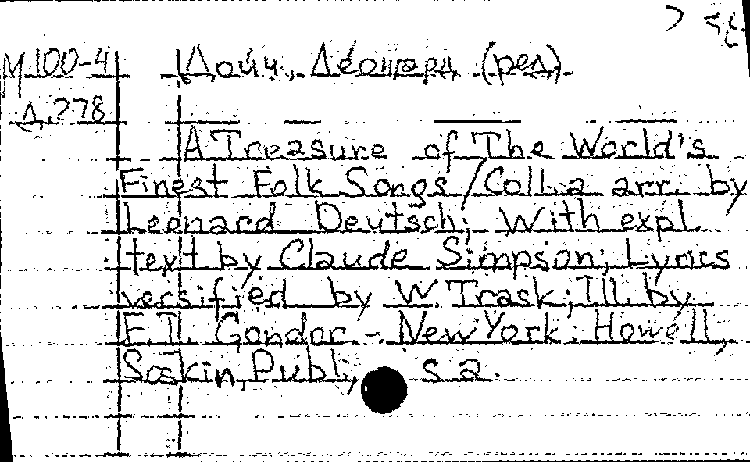 М100-4 Дойч, Леонард (ред)
Д.278
A Treasure of The World's
Finest Folk Songs / Coll. a arr. by
Leonard Deutsch; With expl.
text by Claude Simpson; Lyrics
versified by W. Trask; Ill. by
Gondor. - New York: Howell,
Soskin, Publ., s a.